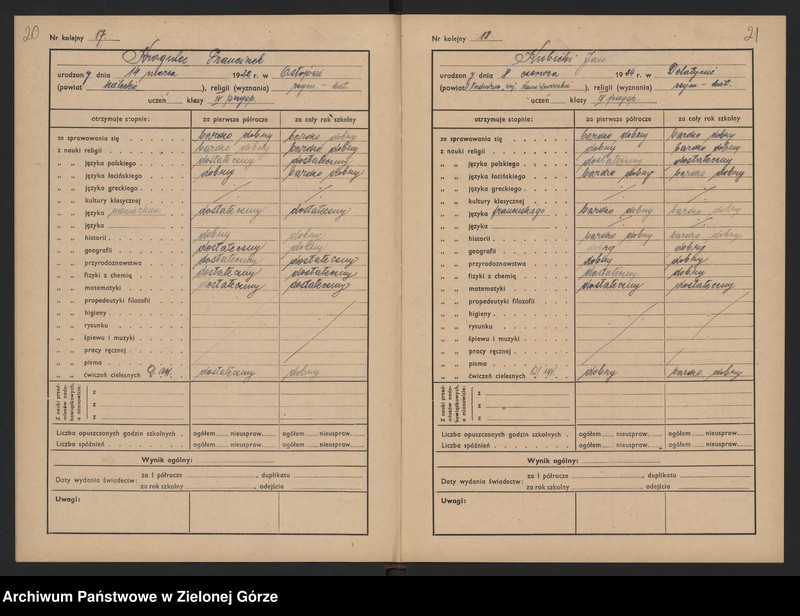 20
Nr kolejny 17
Krogulec Franciszek
urodzony dnia 14 marca 1922 r. w
(powiat ), religii (wyznania) rzym. - kat.
uczeń klasy IV przysp.
otrzymuje stopnie: za pierwsze półrocze za cały rok szkolny
ze sprawowania się bardzo dobry bardzo dobry
z nauki religii bardzo dobry bardzo dobry
" " języka polskiego dostateczny dostateczny
" " języka łacińskiego dobry bardzo dobry
" " języka greckiego
" " kultury klasycznej
" " języka niemieckiego dostateczny dostateczny
" " języka
" " historii dobry dobry
" " geografii dostateczny dobry
" " przyrodoznawstwa dostateczny dostateczny
" " fizyki z chemią dostateczny dostateczny
" " matematyki dostateczny dostateczny
" " propedeutyki filozofii
" " higieny
" " rysunku
" " śpiewu i muzyki
" " pracy ręcznej
" " pisma
" " ćwiczeń cielesnych dostateczny dobry
Z nauki przedmiotów nadobowiązkowych, a mianowicie:
z
z
z
Liczba opuszczonych godzin szkolnych ogółem nieuspraw. ogółem nieuspraw.
Liczba spóźnień ogółem nieuspraw. ogółem nieuspraw.
Wynik ogólny:
Daty wydania świadectw: za I półrocze , duplikatu
za rok szkolny , odejścia
Uwagi:
21
Nr kolejny 18
Kubicki Jan
urodzony dnia 8 czerwca 1924 r. w Delatynie
(powiat Nadwórna, woj. Stanisławowskie), religii (wyznania) rzym. - kat.
uczeń klasy IV przysp.
otrzymuje stopnie: za pierwsze półrocze za cały rok szkolny
ze sprawowania się bardzo dobry bardzo dobry
z nauki religii dobry bardzo dobry
" " języka polskiego dostateczny dostateczny
" " języka łacińskiego bardzo dobry bardzo dobry
" " języka greckiego
" " kultury klasycznej
" " języka francuskiego bardzo dobry bardzo dobry
" " języka
" " historii bardzo dobry bardzo dobry
" " geografii dobry dobry
" " przyrodoznawstwa dobry dobry
" " fizyki z chemią dostateczny dobry
" " matematyki dostateczny dostateczny
" " propedeutyki filozofii
" " higieny
" " rysunku
" " śpiewu i muzyki
" " pracy ręcznej
" " pisma
" " ćwiczeń cielesnych dobry bardzo dobry
Z nauki przedmiotów nadobowiązkowych, a mianowicie:
z
z
z
Liczba opuszczonych godzin szkolnych ogółem nieuspraw. ogółem nieuspraw.
Liczba spóźnień ogółem nieuspraw. ogółem nieuspraw.
Wynik ogólny:
Daty wydania świadectw: za I półrocze , duplikatu
za rok szkolny , odejścia
Uwagi:
Archiwum Państwowe w Zielonej Górze